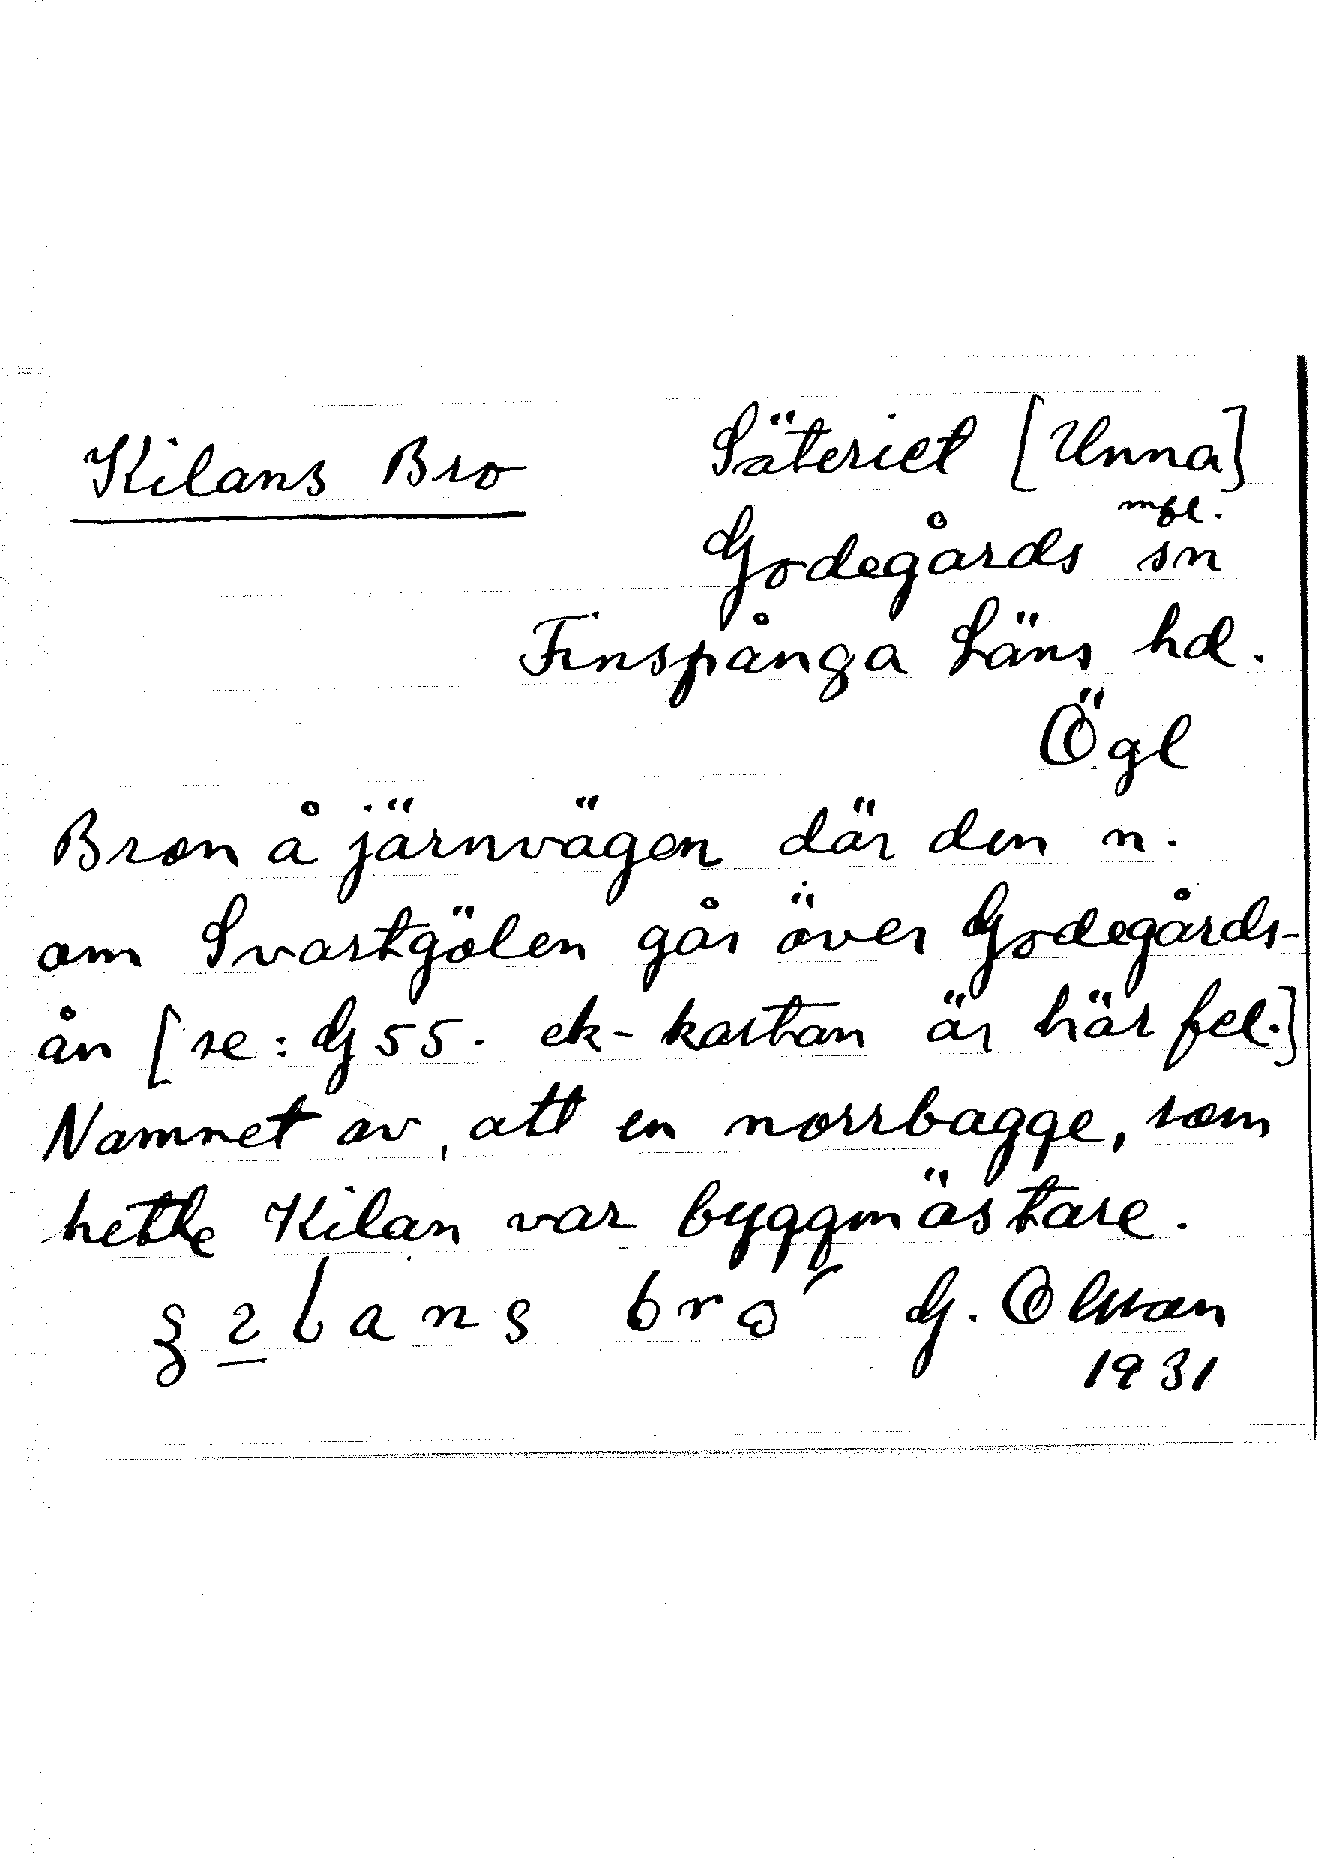 Kilans Bro
Säteriet [Unna]
mfl.
Godegårds sn
Finspånga Läns hd.
Ögl
Bron å järnvägen där den n.
om Svartgölen går över Godegårds-
ån [se: G 55. ek-kartan är här fel.]
Namnet av, att en norrbagge, som
hette Kilan var byggmästare.
G. Olman
1931